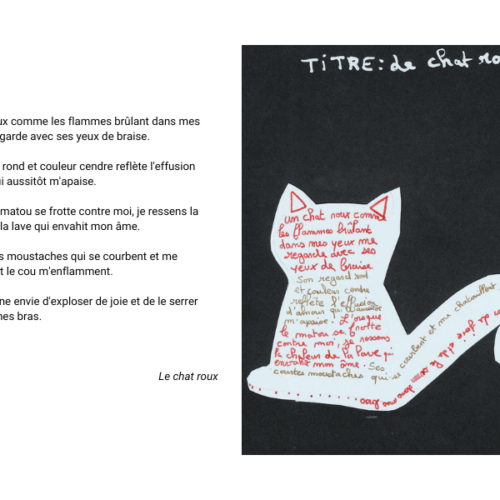 ux comme les flammes brûlant dans mes
garde avec ses yeux de braise.
rond et couleur cendre reflète l'effusion
i aussitôt m'apaise.
matou se frotte contre moi, je ressens la
la lave qui envahit mon âme.
s moustaches qui se courbent et me
t le cou m'enflamment.
ne envie d'exploser de joie et de le serrer
nes bras.
Le chat roux
TiTRE: Le chat ro
un chat roux comme
les flammes brûlant
dans mes yeux me
regarde avec ses
yeux de braise
Son regard rond
et couleur cendre
reflète l'effusion
d'amour qui aussitôt
m'apaise. Lorsque
le matou se frotte
contre moi, je ressens
la chaleur de la lave qui
envahit mon âme. Ses
courtes moustaches qui se courbent et me chatouillent